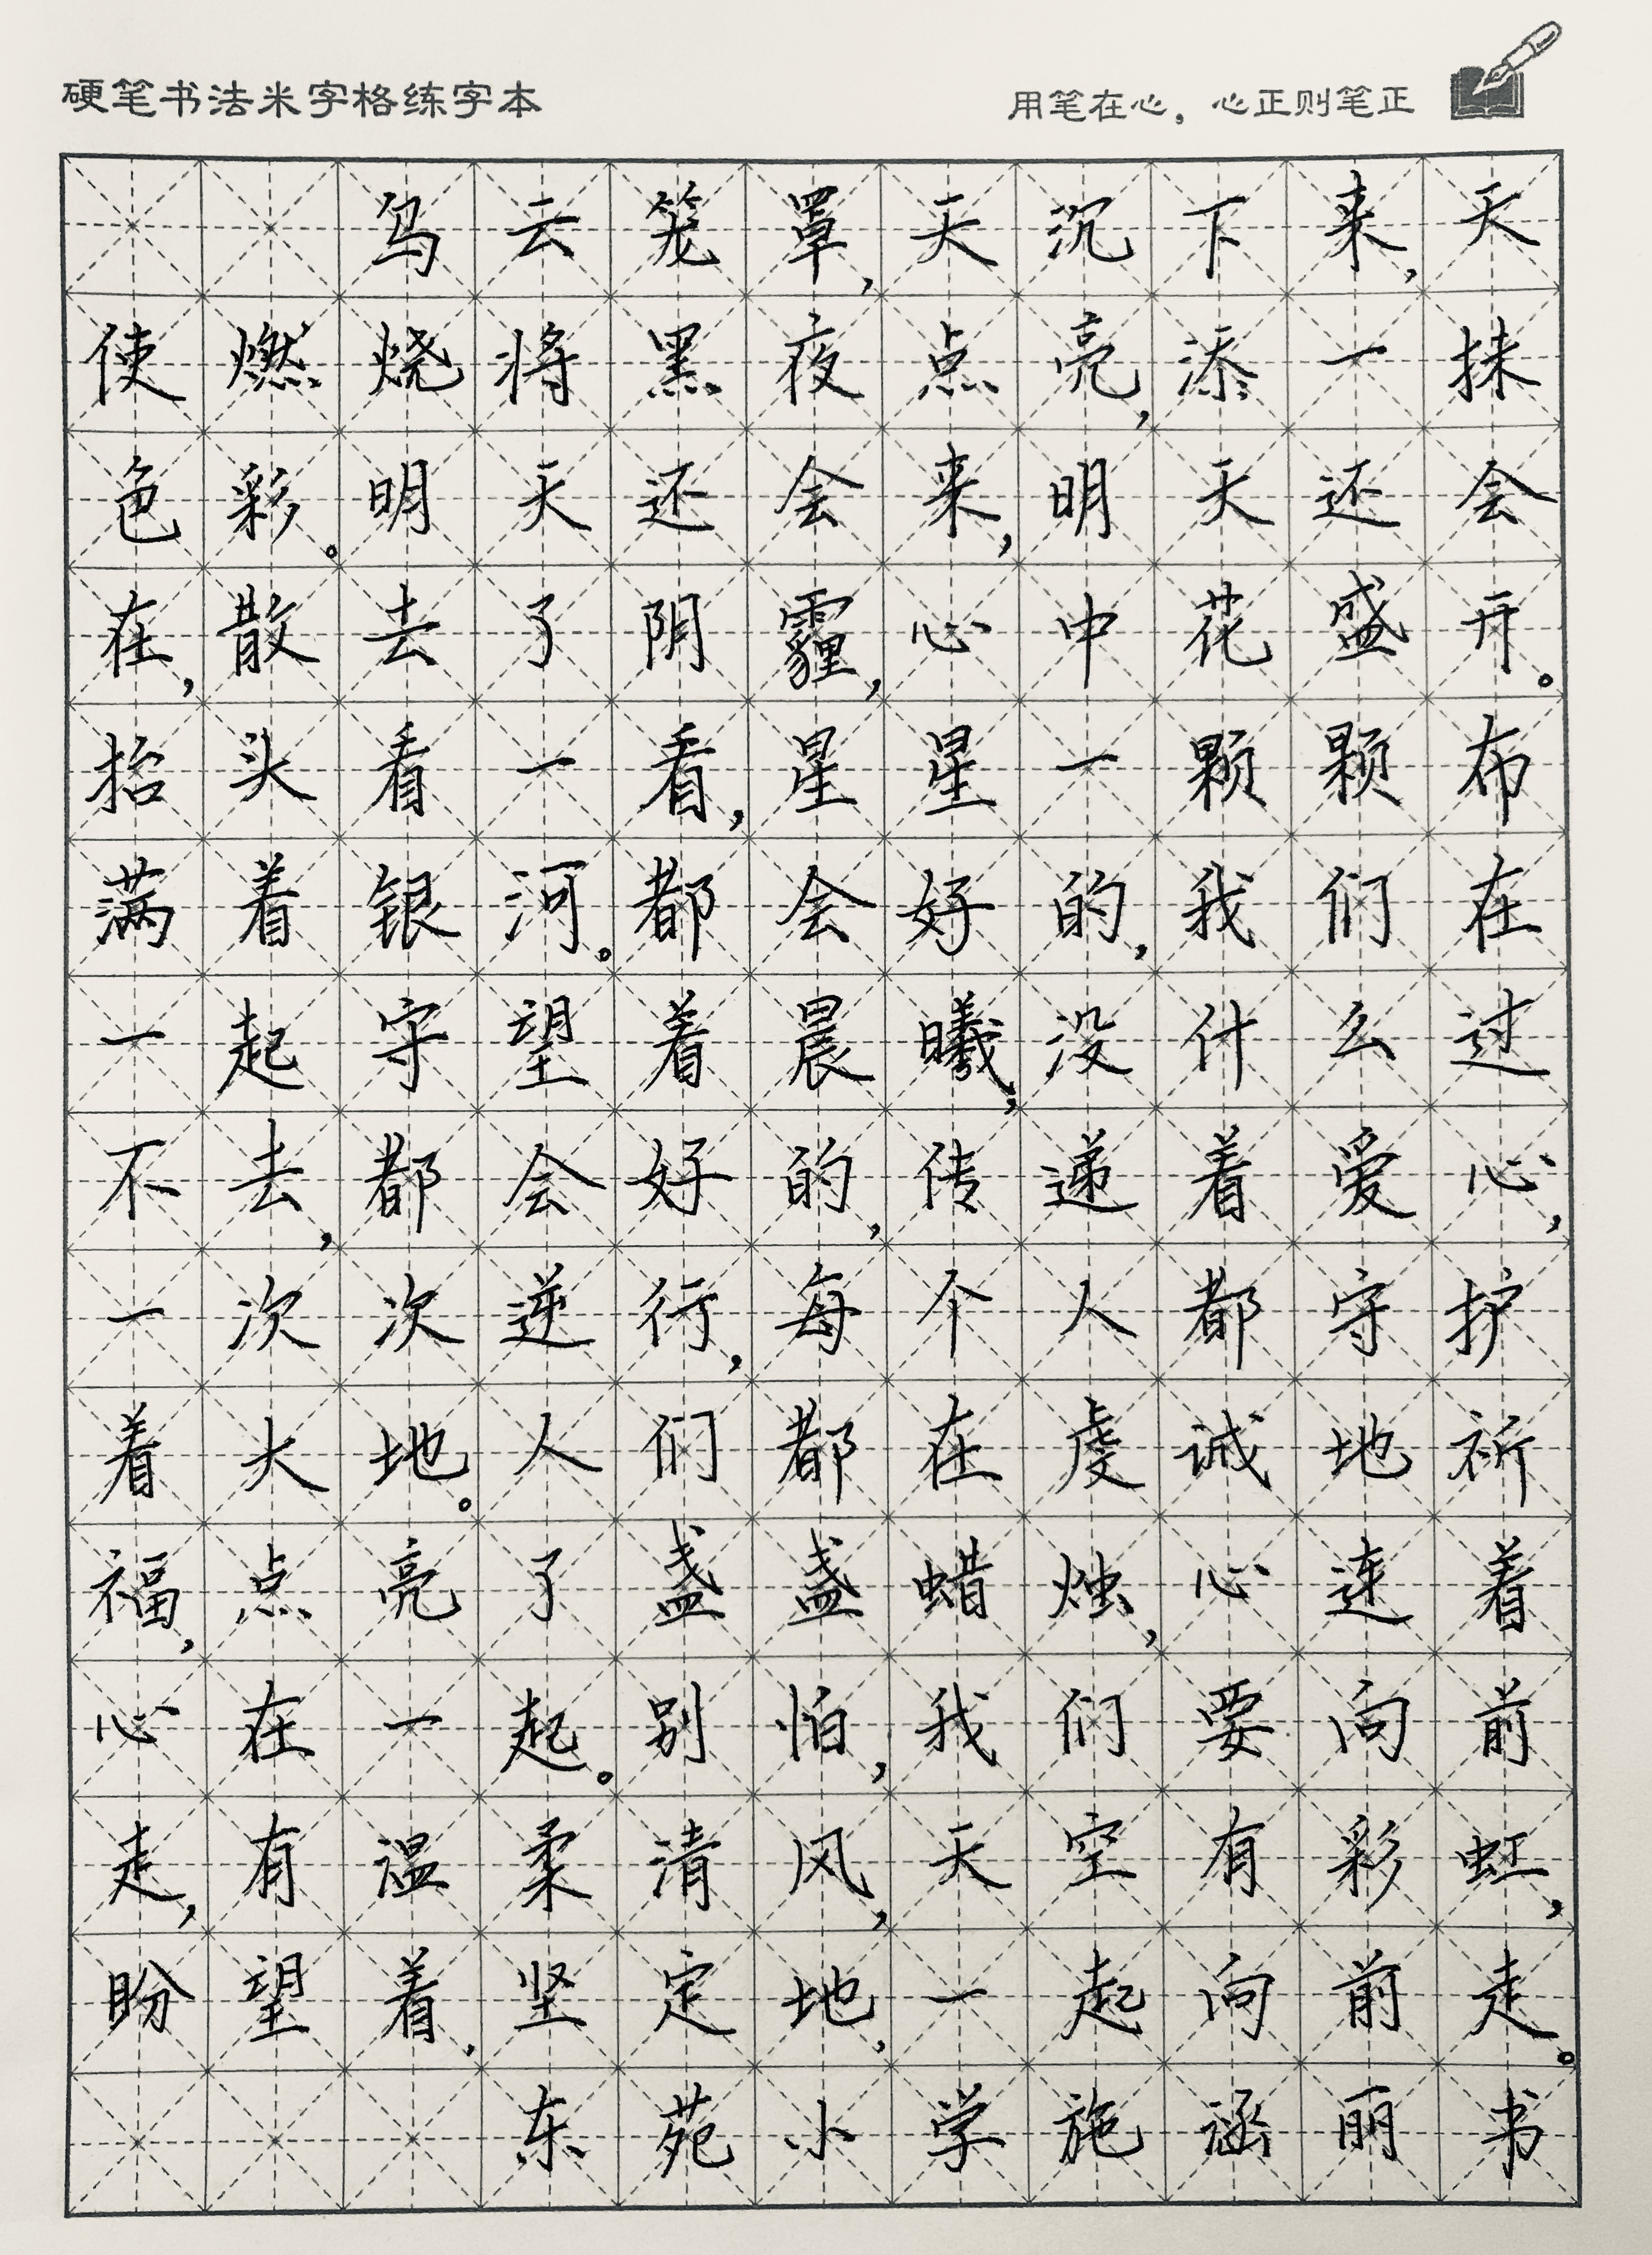 硬笔书法米字格练字本
用笔在心，心正则笔正
乌云笼罩，天沉下来，天
使燃烧将黑夜点亮，添一抹
色彩。明天还会来，明天还会
在，散去了阴霾，心中花盛开。
抬头看一看，星星一颗颗布
满着银河。都会好的，我们在
一起守望着晨曦，没什么过
不去，都会好的，传递着爱心，
一次次逆行，每个人都守护
着大地。人们都在虔诚地祈
福，点亮了盏盏蜡烛，心连着
心在一起。别怕，我们要向前
走，有温柔清风，天空有彩虹，
盼望着，坚定地，一起向前走。
东苑小学施涵丽书